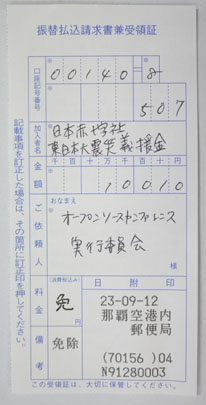 振替払込請求書兼受領証
口座記号番号
00140-8
507
加入者名
日本赤十字社
東日本大震災義援金
金額
千百十万千百十円
10010
ご依頼人
おなまえ
オープンソースカンファレンス
実行委員会
様
料金
(消費税込み)
免
円
備考
免除
日附印
23-09-12
那覇空港内
郵便局
(70156 )04
N91280003
記載事項を訂正した場合は、その箇所に訂正印を押してください。
この受領証は、大切に保管してください。